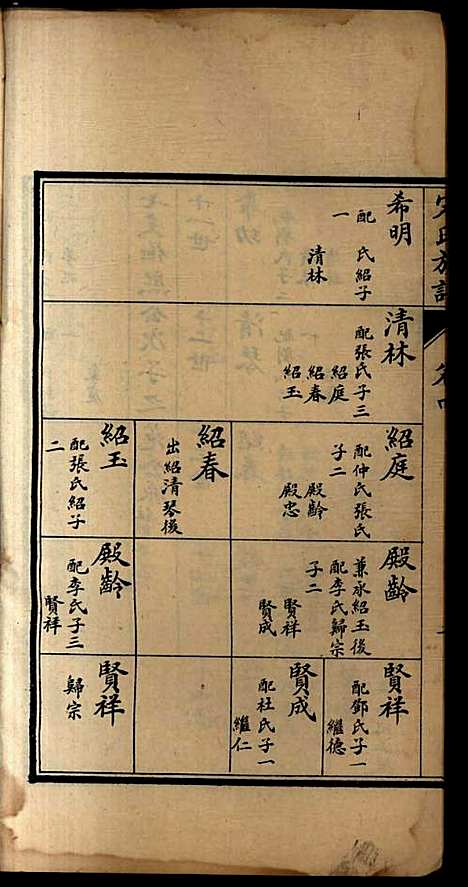 宋氏族譜
卷四
希明
配 氏紹子
一
清林
清林
配張氏子三
紹庭
紹春
紹玉
紹庭
配仲氏張氏
子二
殿齡
殿忠
紹春
出紹清琴後
紹玉
配張氏紹子
二
殿齡
兼承紹玉後
配李氏歸宗
子二
賢祥
賢成
殿齡
配李氏子三
賢祥
賢祥
配鄧氏子一
繼德
賢成
配杜氏子一
繼仁
賢祥
歸宗